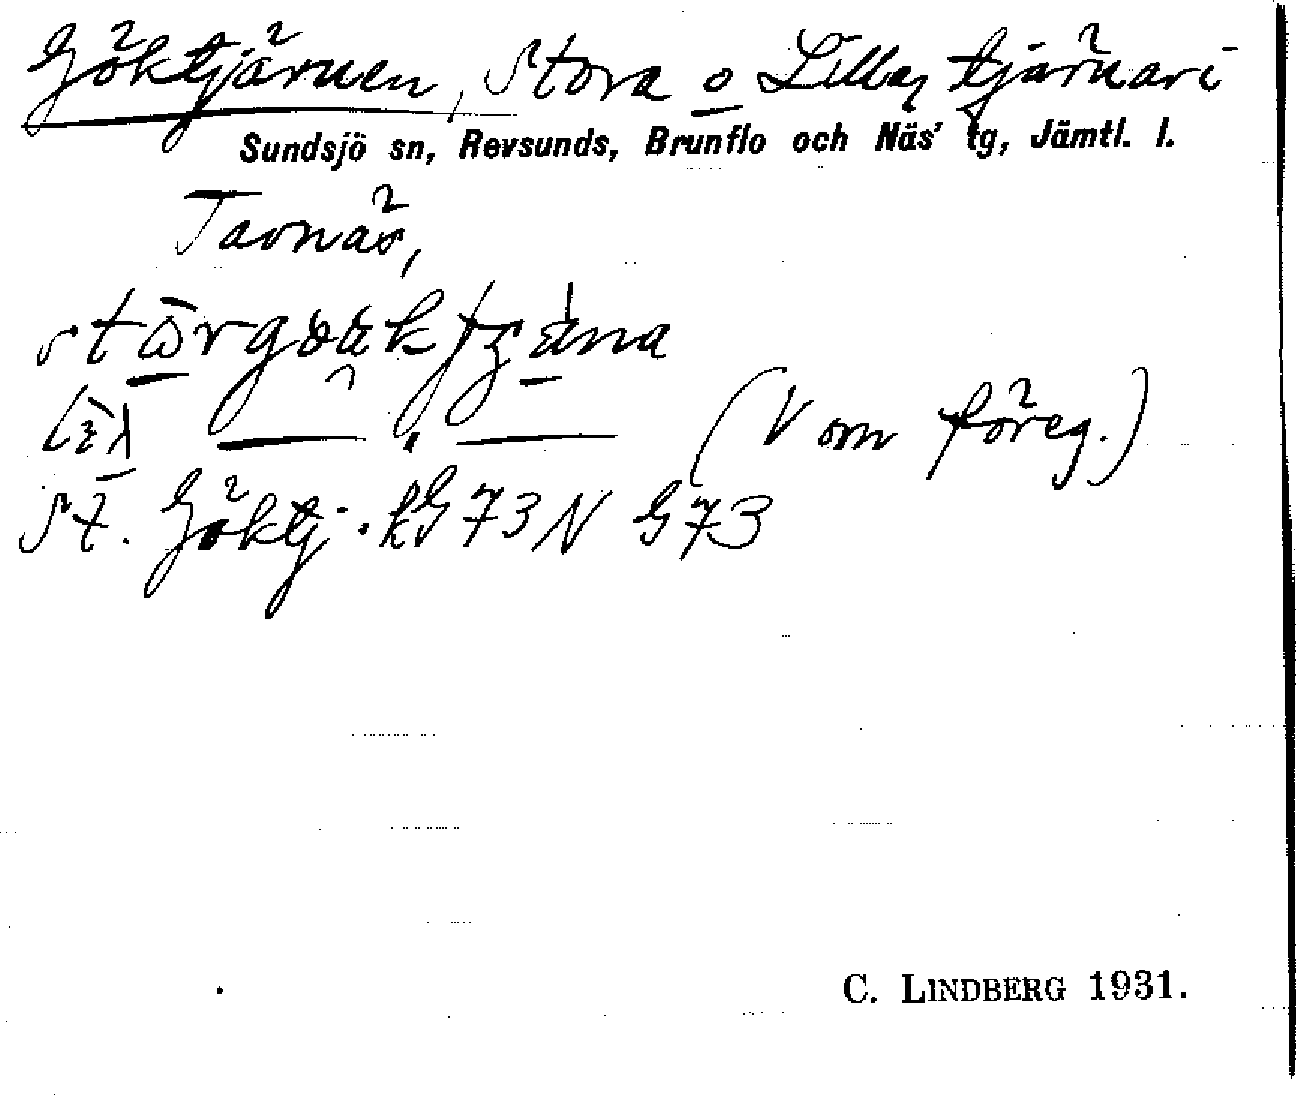 Göktjärnen, Stora o Lilla, tjärnar i
Sundsjö sn, Revsunds, Brunflo och Näs' tg, Jämtl. l.
Tavnäs,
(V om föreg.)
St. Göktj. kG 73 N G 73
C. LINDBERG 1931.